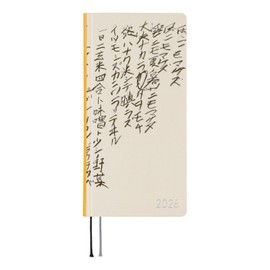 雨ニモマケズ
風ニモマケズ
雪ニモ夏ノ暑サニモマケヌ
丈夫ナカラダヲモチ
慾ハナク決シテ瞋ラズ
イツモシヅカニワラッテヰル
一日ニ玄米四合ト味噌ト少シノ野菜
2026